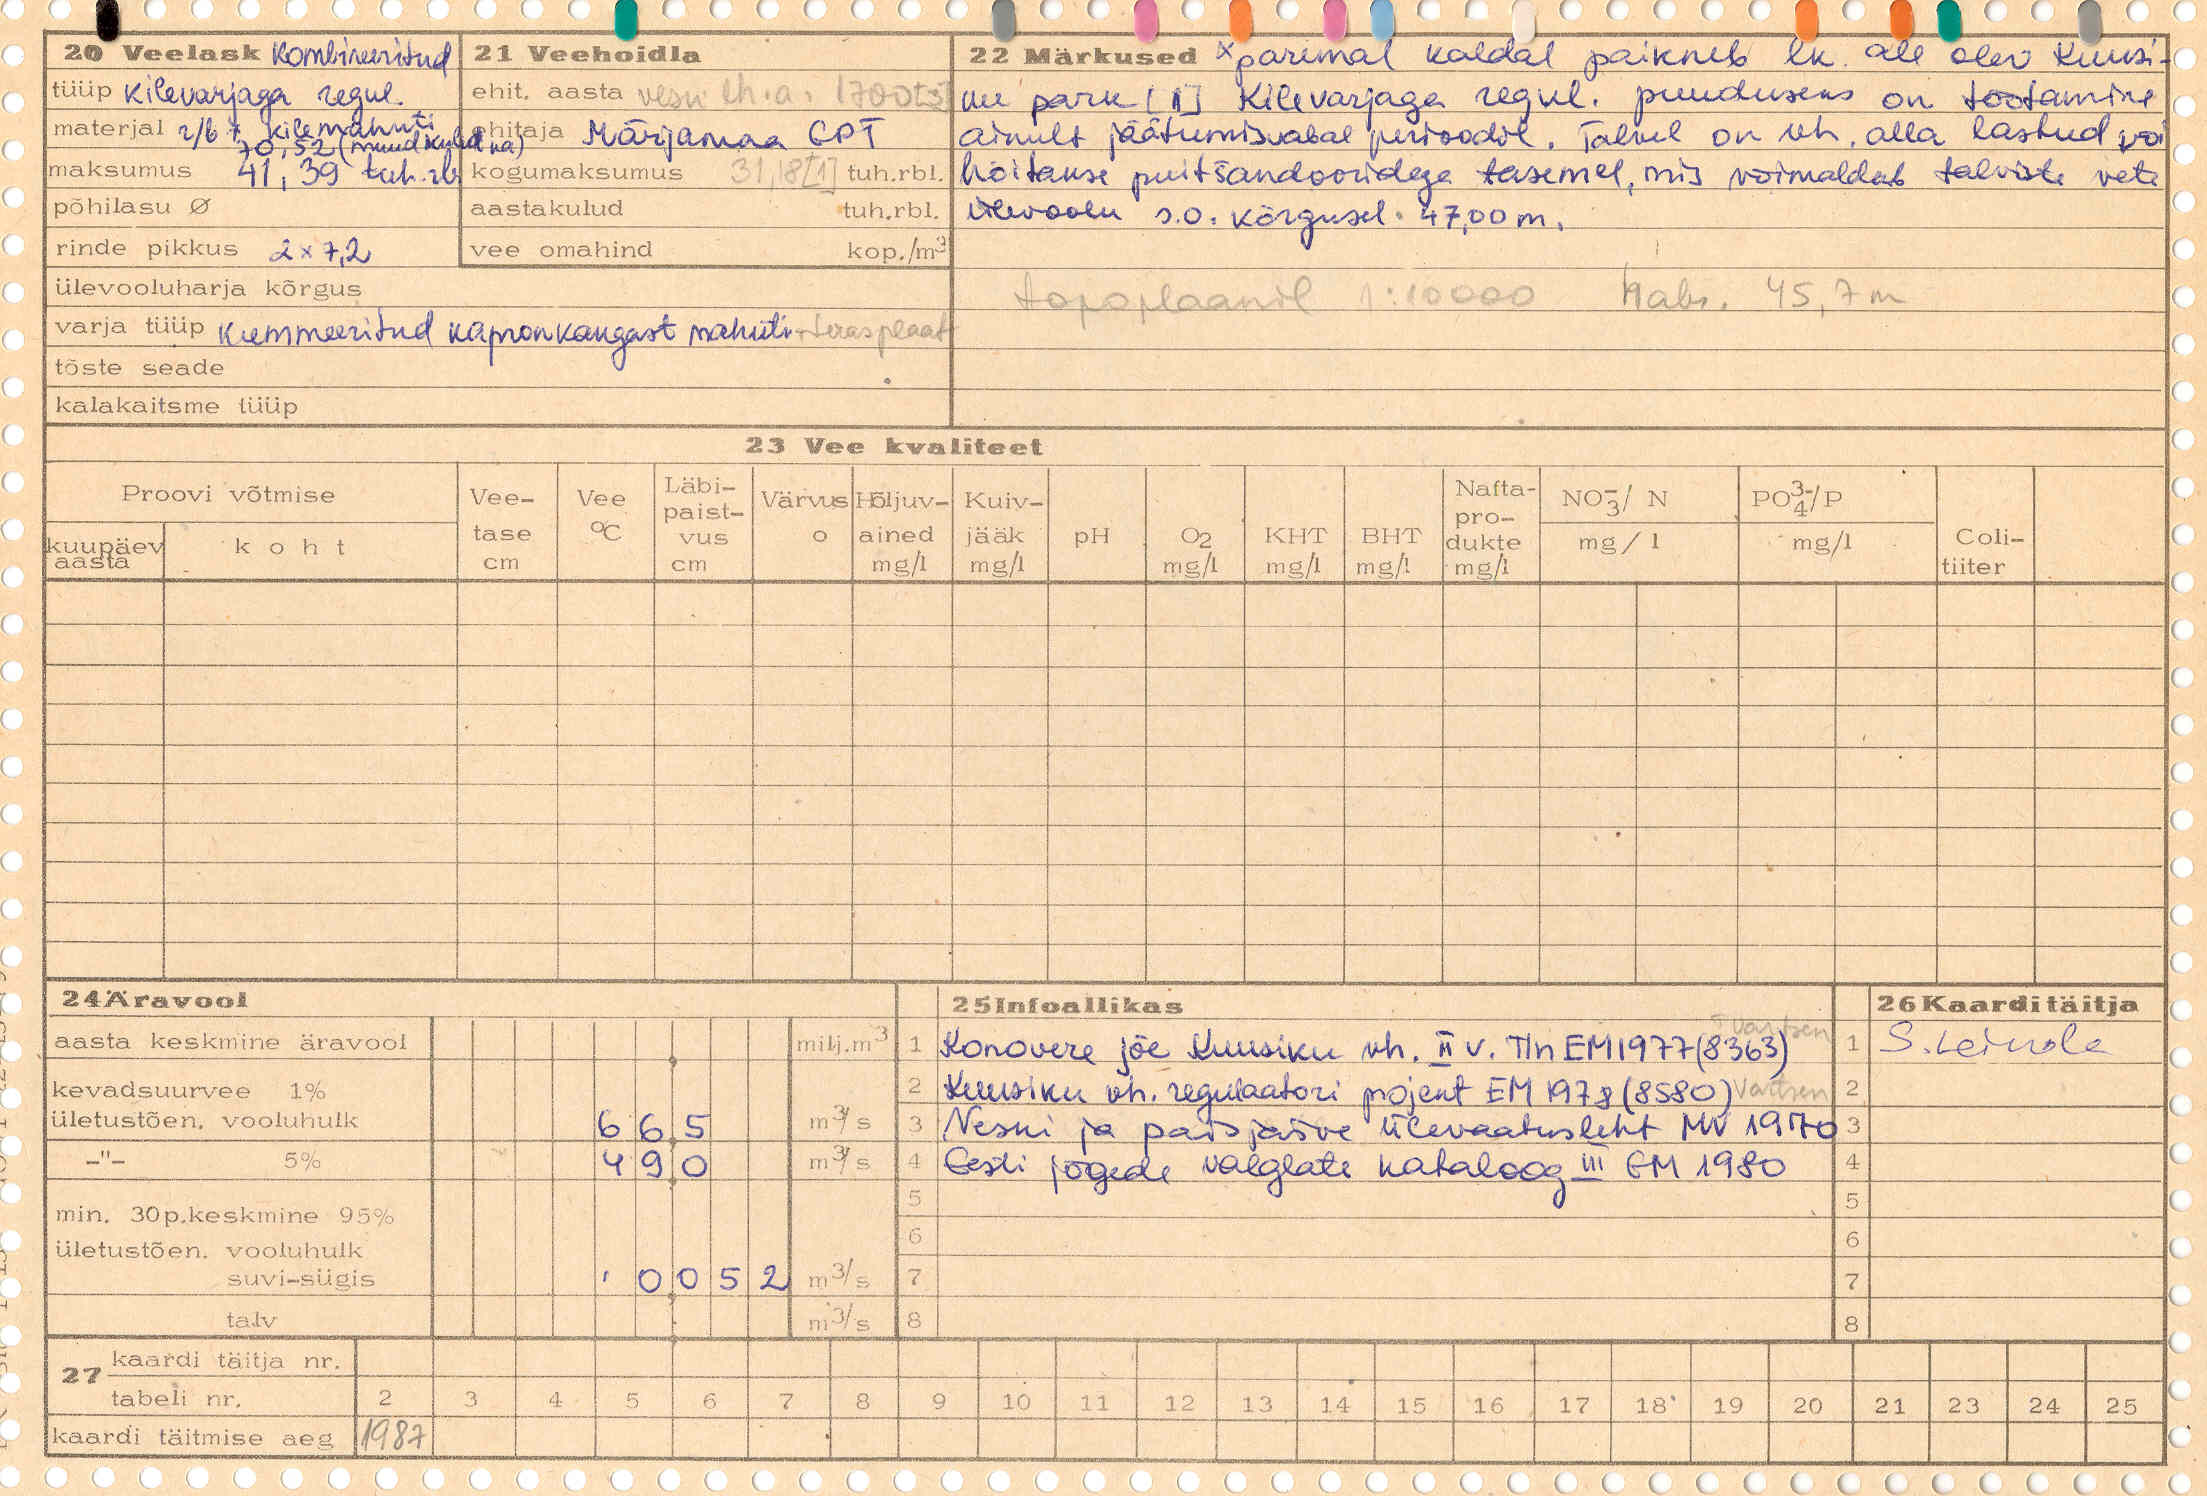 20 Veelask Kombineeritud
tüüp kilevarjaga regul.
materjal r/b +, kilemahuti
70,52 (muud kulud ka)
maksumus 41,39 tuh.rbl
põhilasu Ø
rinde pikkus 2 x 7,2
ülevooluharja kõrgus
varja tüüp kummeeritud kapronkangast mahuti + terasplaat
tõste seade
kalakaitsme tüüp
21 Veehoidla
ehit. aasta veski eh.a. 1700 [3]
ehitaja Märjamaa EPT
kogumaksumus 31,18 [1] tuh.rbl.
aastakulud tuh.rbl.
vee omahind kop./m3
22 Märkused x paremal kaldal paikneb lk. all olev Kuusi-
ku park [1] Kilevarjaga regul. puuduseks on töötamine
ainult jäätumisvabal perioodil. Talvel on vh. alla lastud või
hoitakse puitšandooridega tasemel, mis võimaldab talviste vete
ülevoolu s.o. kõrgusel 47,00 m.
topoplaanil 1:10000 Habs. 45,7 m
23 Vee kvaliteet
Proovi võtmise
kuupäev aasta
koht
Vee-tase cm
Vee °C
Läbi-paist-vus cm
Värvus o
Hõljuv-ained mg/l
Kuiv-jääk mg/l
pH
O2 mg/l
KHT mg/l
BHT mg/l
Nafta-pro-dukte mg/l
NO3-/ N mg/l
PO4 3-/P mg/l
Coli-tiiter
24 Äravool
aasta keskmine äravool milj.m3
kevadsuurvee 1%
ületustõen. vooluhulk 66,5 m3/s
-"- 5% 49,0 m3/s
min. 30p.keskmine 95%
ületustõen. vooluhulk
suvi-sügis 0,052 m3/s
talv m3/s
25 Infoallikas
Vartsen
1 Konovere jõe Kuusiku vh. II v. Tln EM 1977 (8363)
2 Kuusiku vh. regulaatori projekt EM 1978 (8580) Vartsen
3 Veski ja paisjärve ülevaatusleht MV 1970
4 Eesti jõgede valglate kataloog III EM 1980
5
6
7
8
26 Kaardi täitja
1 S. Leinola
2
3
4
5
6
7
8
27 kaardi täitja nr.
tabeli nr. 2 3 4 5 6 7 8 9 10 11 12 13 14 15 16 17 18 19 20 21 23 24 25
kaardi täitmise aeg 1987